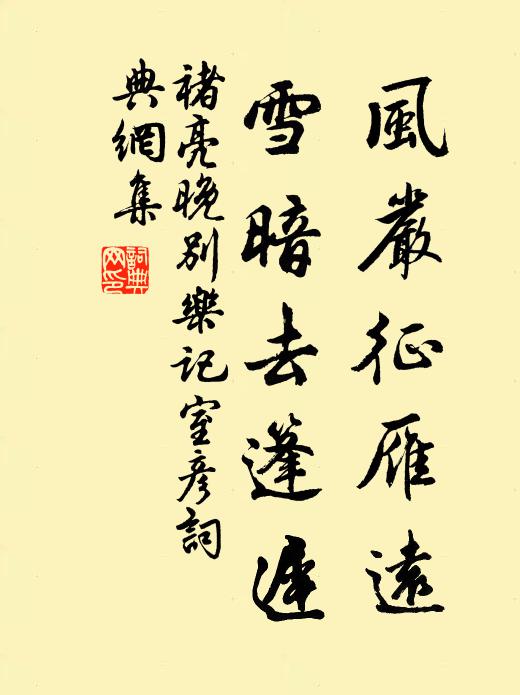 風嚴征雁遠
雪暗去篷遲
褚亮晚別樂記室彥詞
典網集
詞典
网印